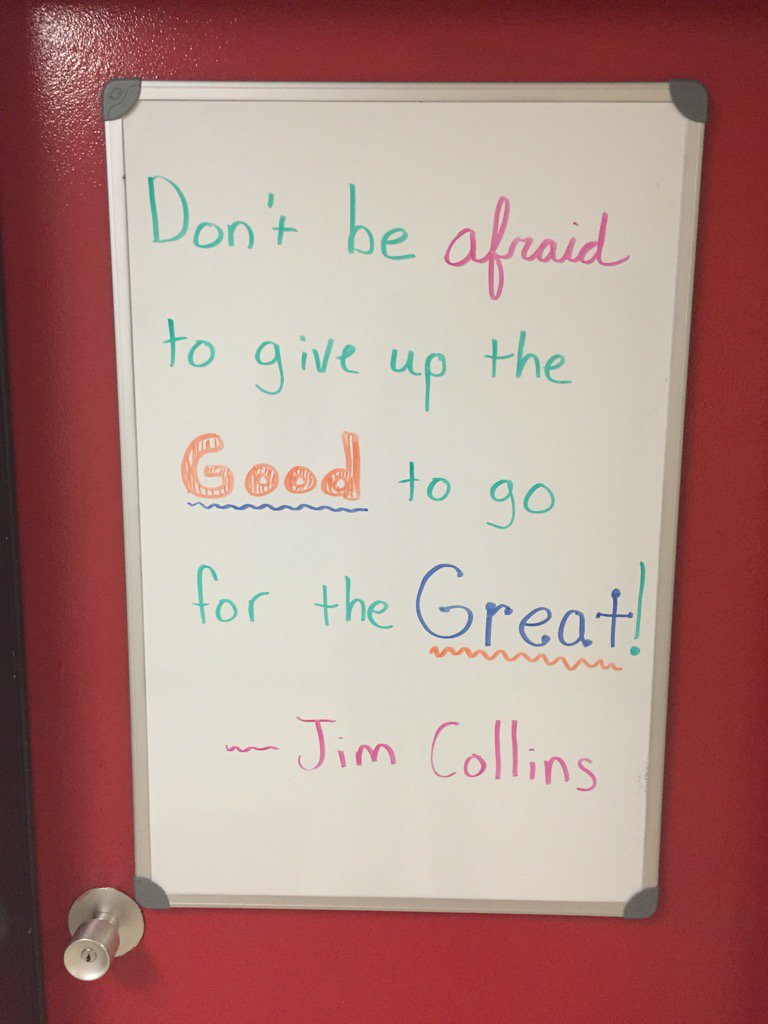 Don't be afraid
to give up the
Good to go
for the Great!
~ Jim Collins